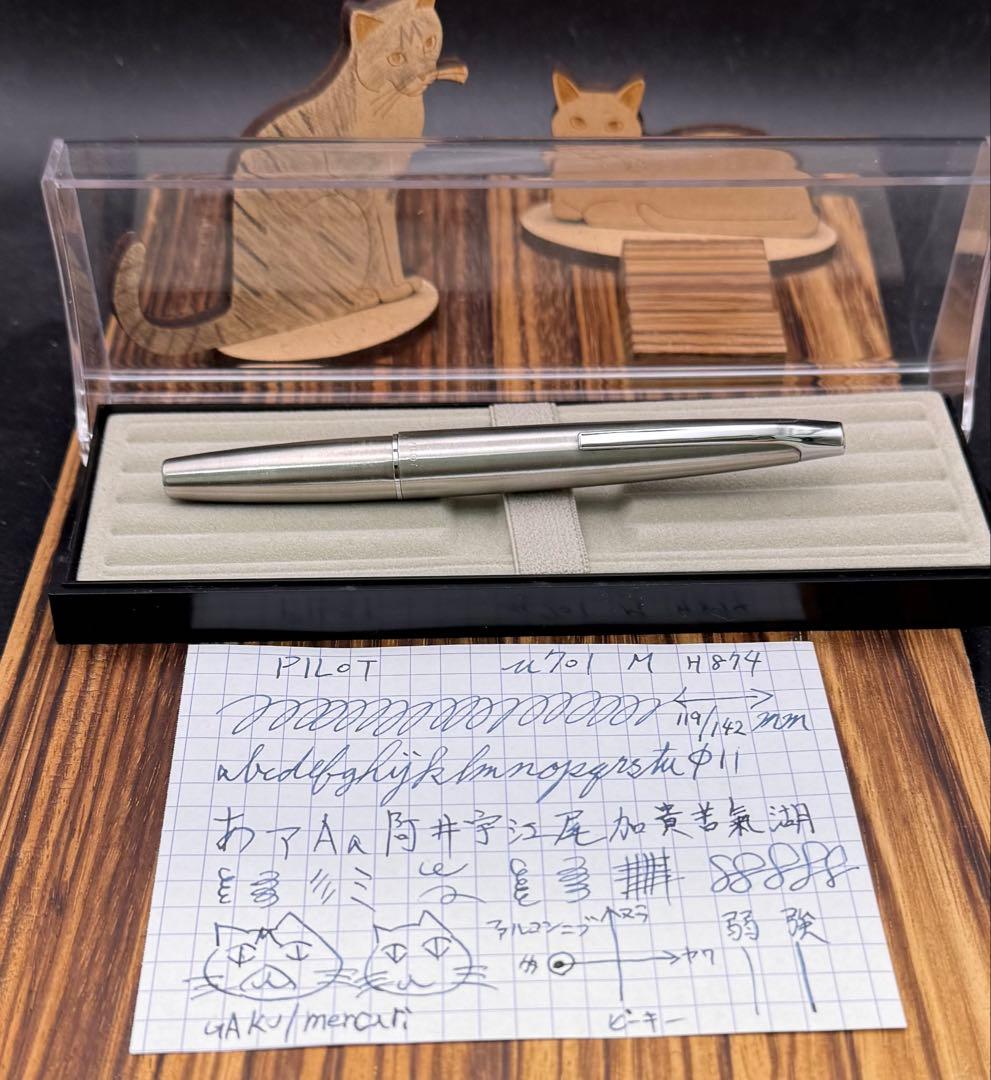 PILOT μ701 M H874
119/142 mm
abcdefghijklmnopqrstu φ11
あ ア A a 阿 井 宇 江 尾 加 貴 苦 氣 湖
アルコンニブ ヌラ 弱 強
カタ ヤワ
GAKU/mercari ビーキー